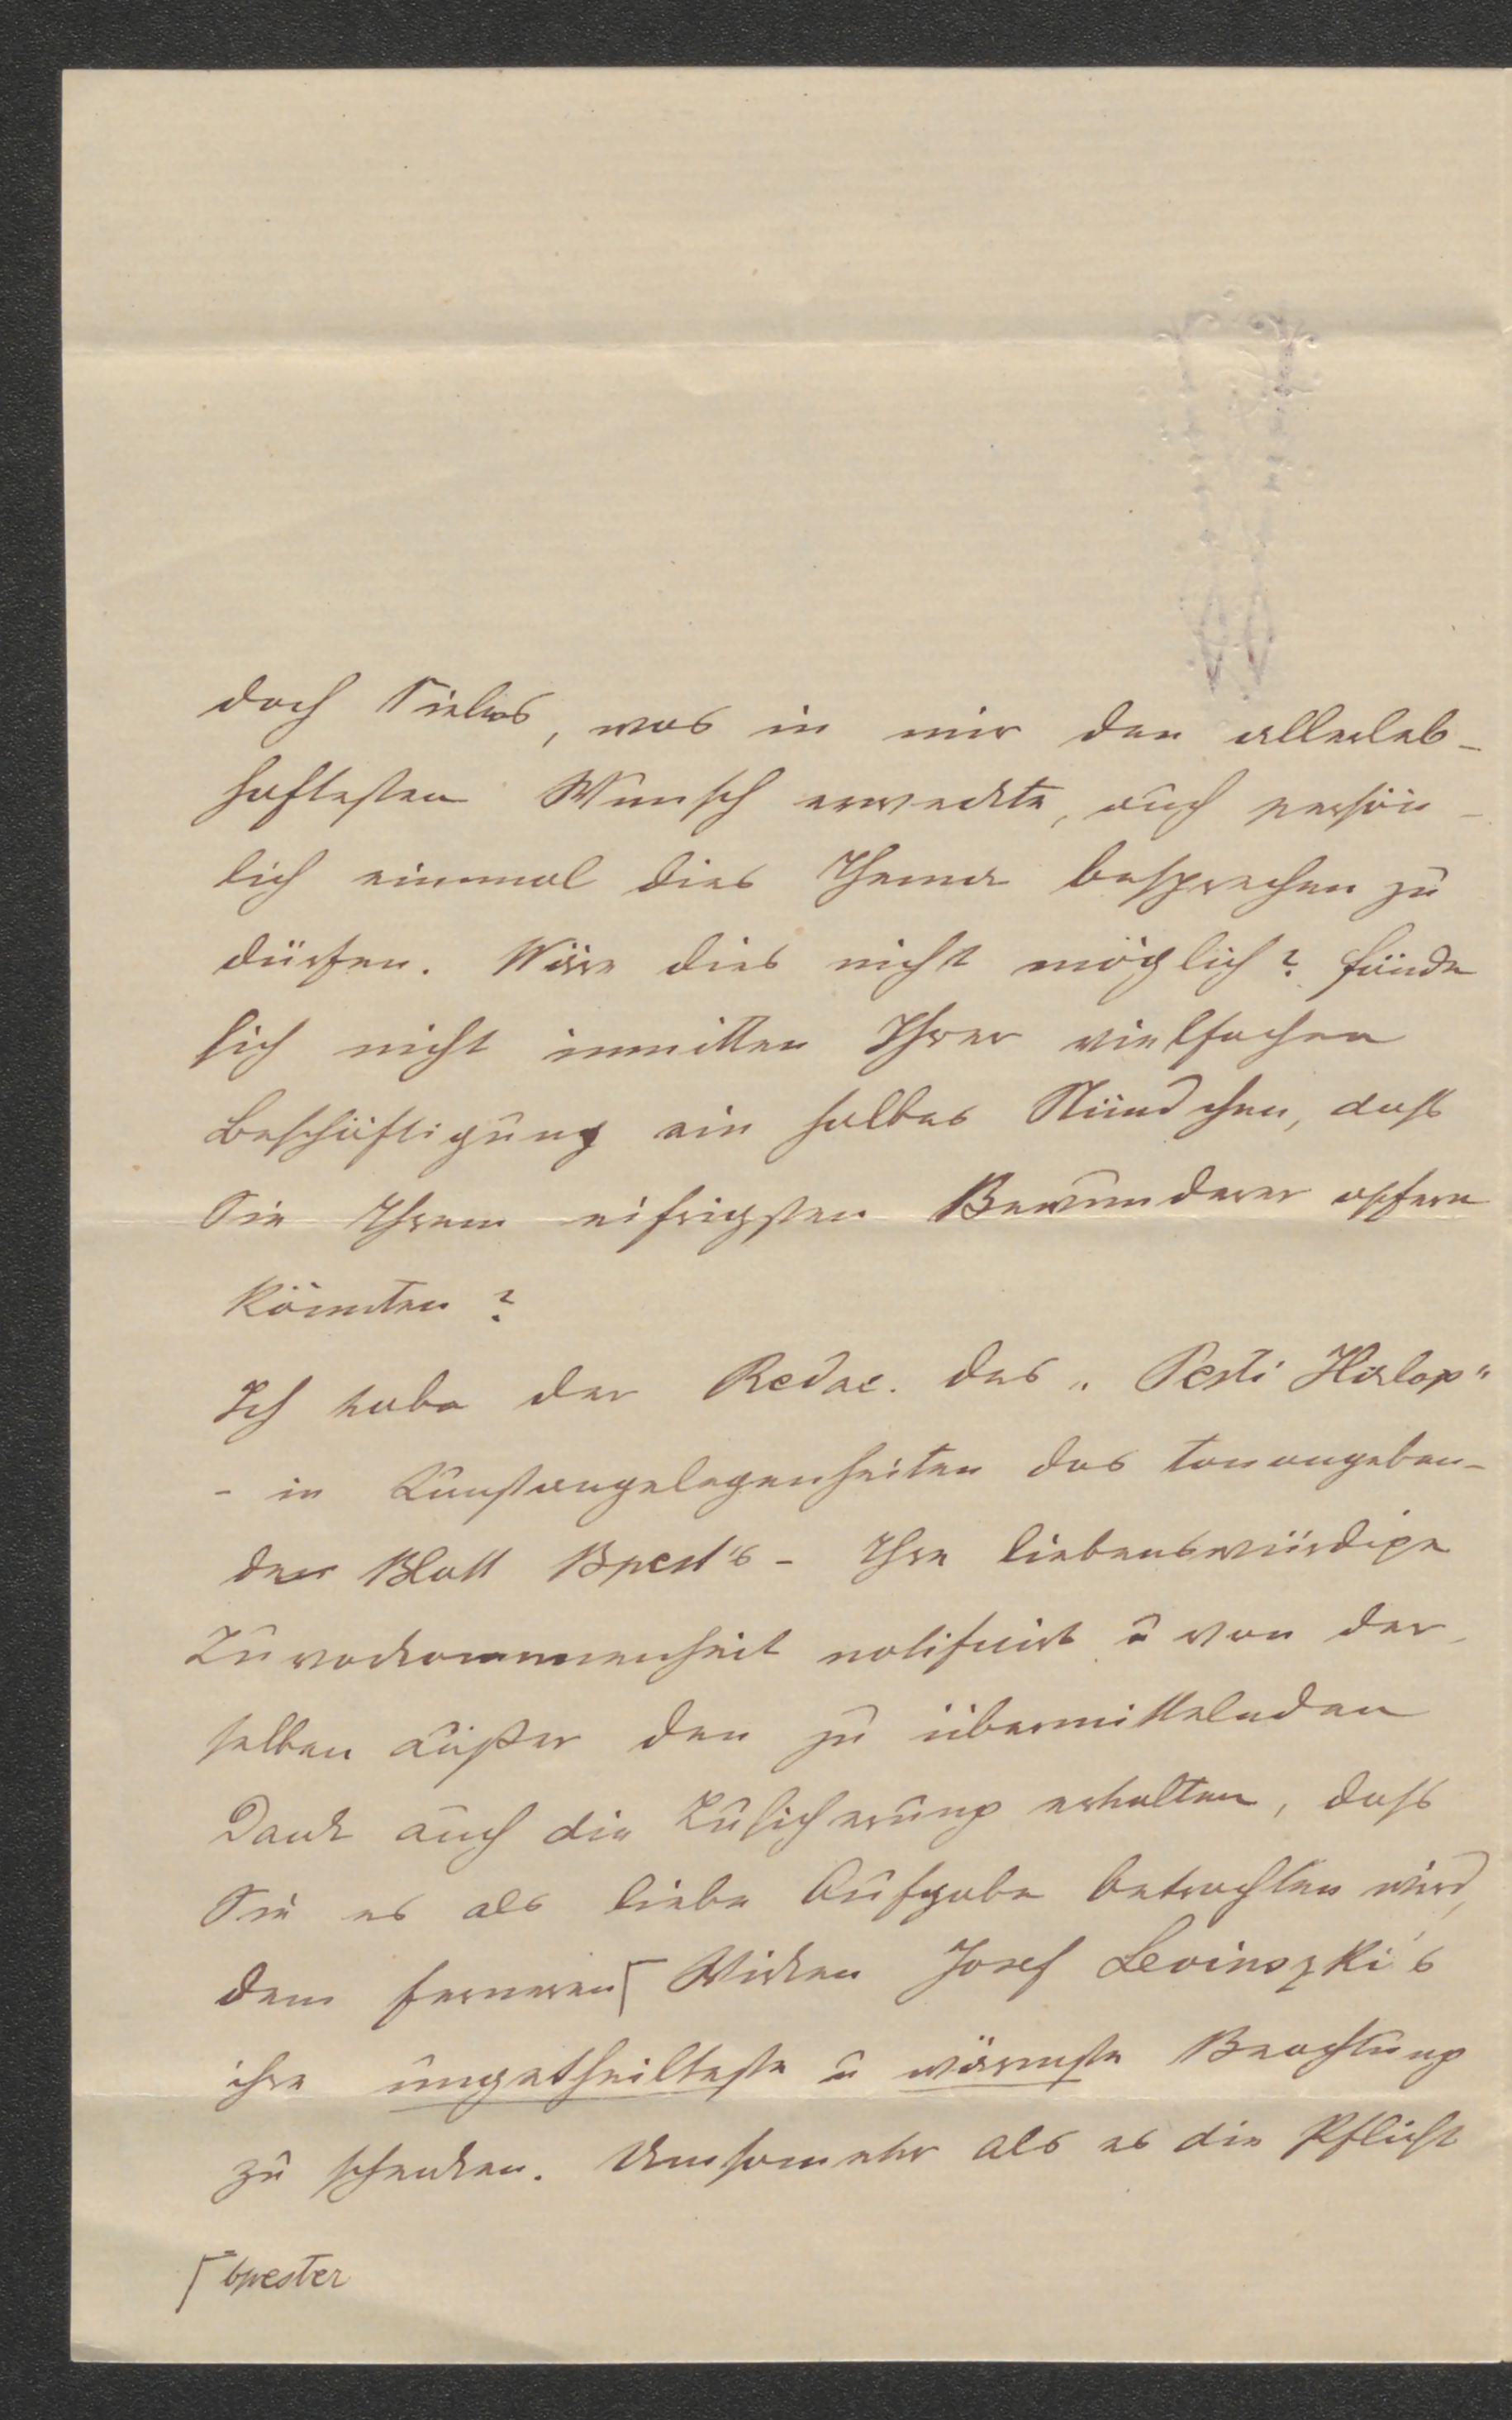 doch Vieles, was in mir den allerleb-
haftesten Wunsch erweckte, auch persön-
lich einmal dies Thema besprechen zu
dürfen. Wäre dies nicht möglich? fände
sich nicht inmitten Ihrer vielfachen
Beschäftigung ein halbes Stündchen, daß
Sie Ihrem eifrigsten Bewunderer opfern
könnten?
Ich habe der Redac. des „Pesti Hirlap“
- in Kunstangelegenheiten das tonangeben-
des Blatt Bpest's - Ihre liebenswürdige
Zuvorkommenheit notificirt u von der-
selben außer den zu übermittelnden
Dank auch die Zusicherung erhalten, daß
Sie es als liebe Aufgabe betrachten wird,
dem ferneren ⌈ Wirken Josef Levinszki's
ihre ungetheilteste u wärmste Beachtung
zu schenken. Umsomehr als es die Pflicht
⌈ bpester